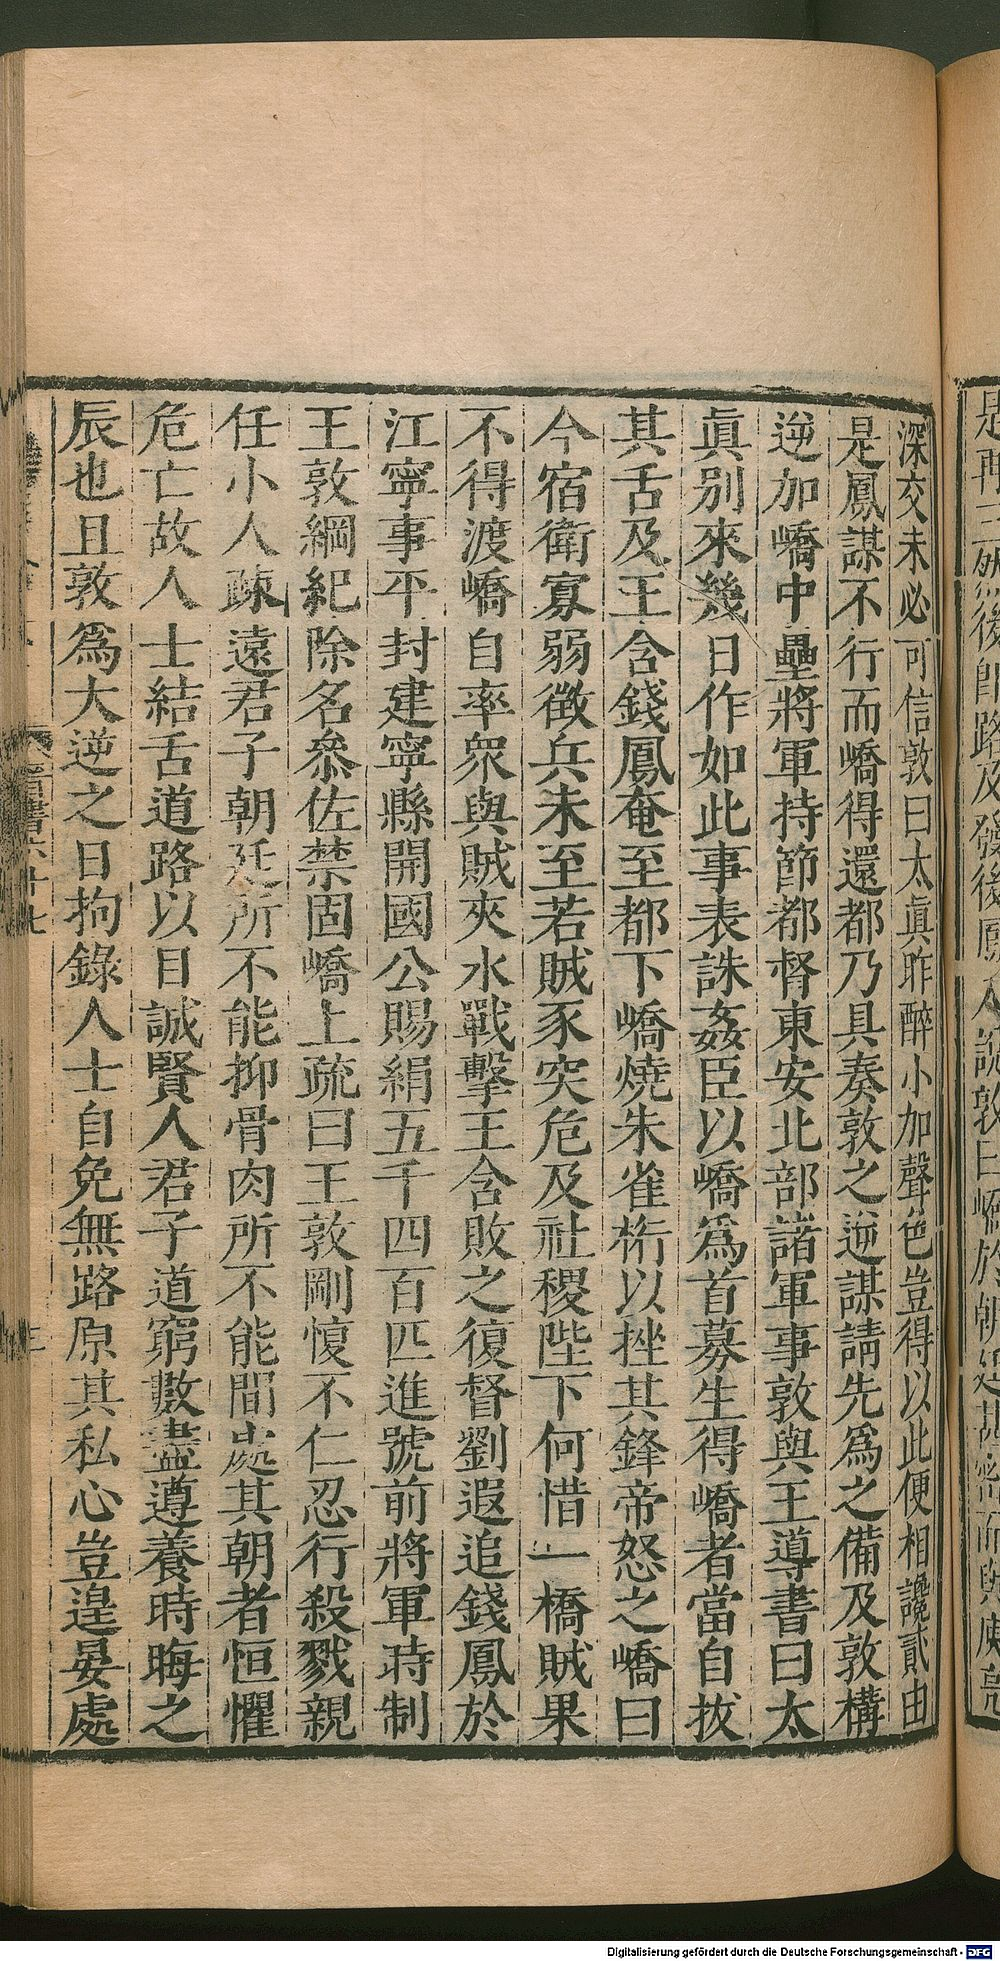 是再三然後即路及發後鳳入說敦曰嶠於朝廷甚密而與庾亮
深交未必可信敦曰太眞昨醉小加聲色豈得以此便相讒貳由
是鳳謀不行而嶠得還都乃具奏敦之逆謀請先爲之備及敦構
逆加嶠中壘將軍持節都督東安北部諸軍事敦與王導書曰太
眞別來幾日作如此事表誅姦臣以嶠爲首募生得嶠者當自拔
其舌及王含錢鳳奄至都下嶠燒朱雀桁以挫其鋒帝怒之嶠曰
今宿衛寡弱徵兵未至若賊豕突危及社稷陛下何惜一橋賊果
不得渡嶠自率衆與賊夾水戰擊王含敗之復督劉遐追錢鳳於
江寧事平封建寧縣開國公賜絹五千四百匹進號前將軍時制
王敦綱紀除名叅佐禁固嶠上疏曰王敦剛愎不仁忍行殺戮親
任小人疎遠君子朝廷所不能抑骨肉所不能間處其朝者恒懼
危亡故人士結舌道路以目誠賢人君子道窮數盡遵養時晦之
辰也且敦爲大逆之日拘錄人士自免無路原其私心豈遑晏處
晉書六十七
三
Digitalisierung gefördert durch die Deutsche Forschungsgemeinschaft - DFG